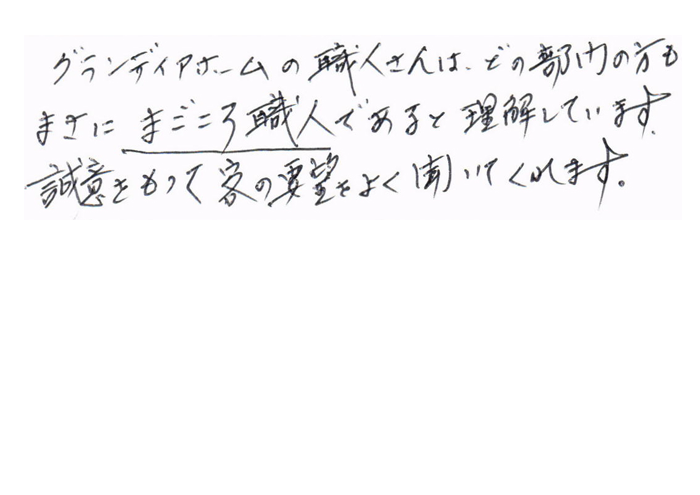 グランディアホームの職人さんは、どの部門の方も
まさにまごころ職人であると理解しています。
誠意をもって客の要望をよく聞いてくれます。